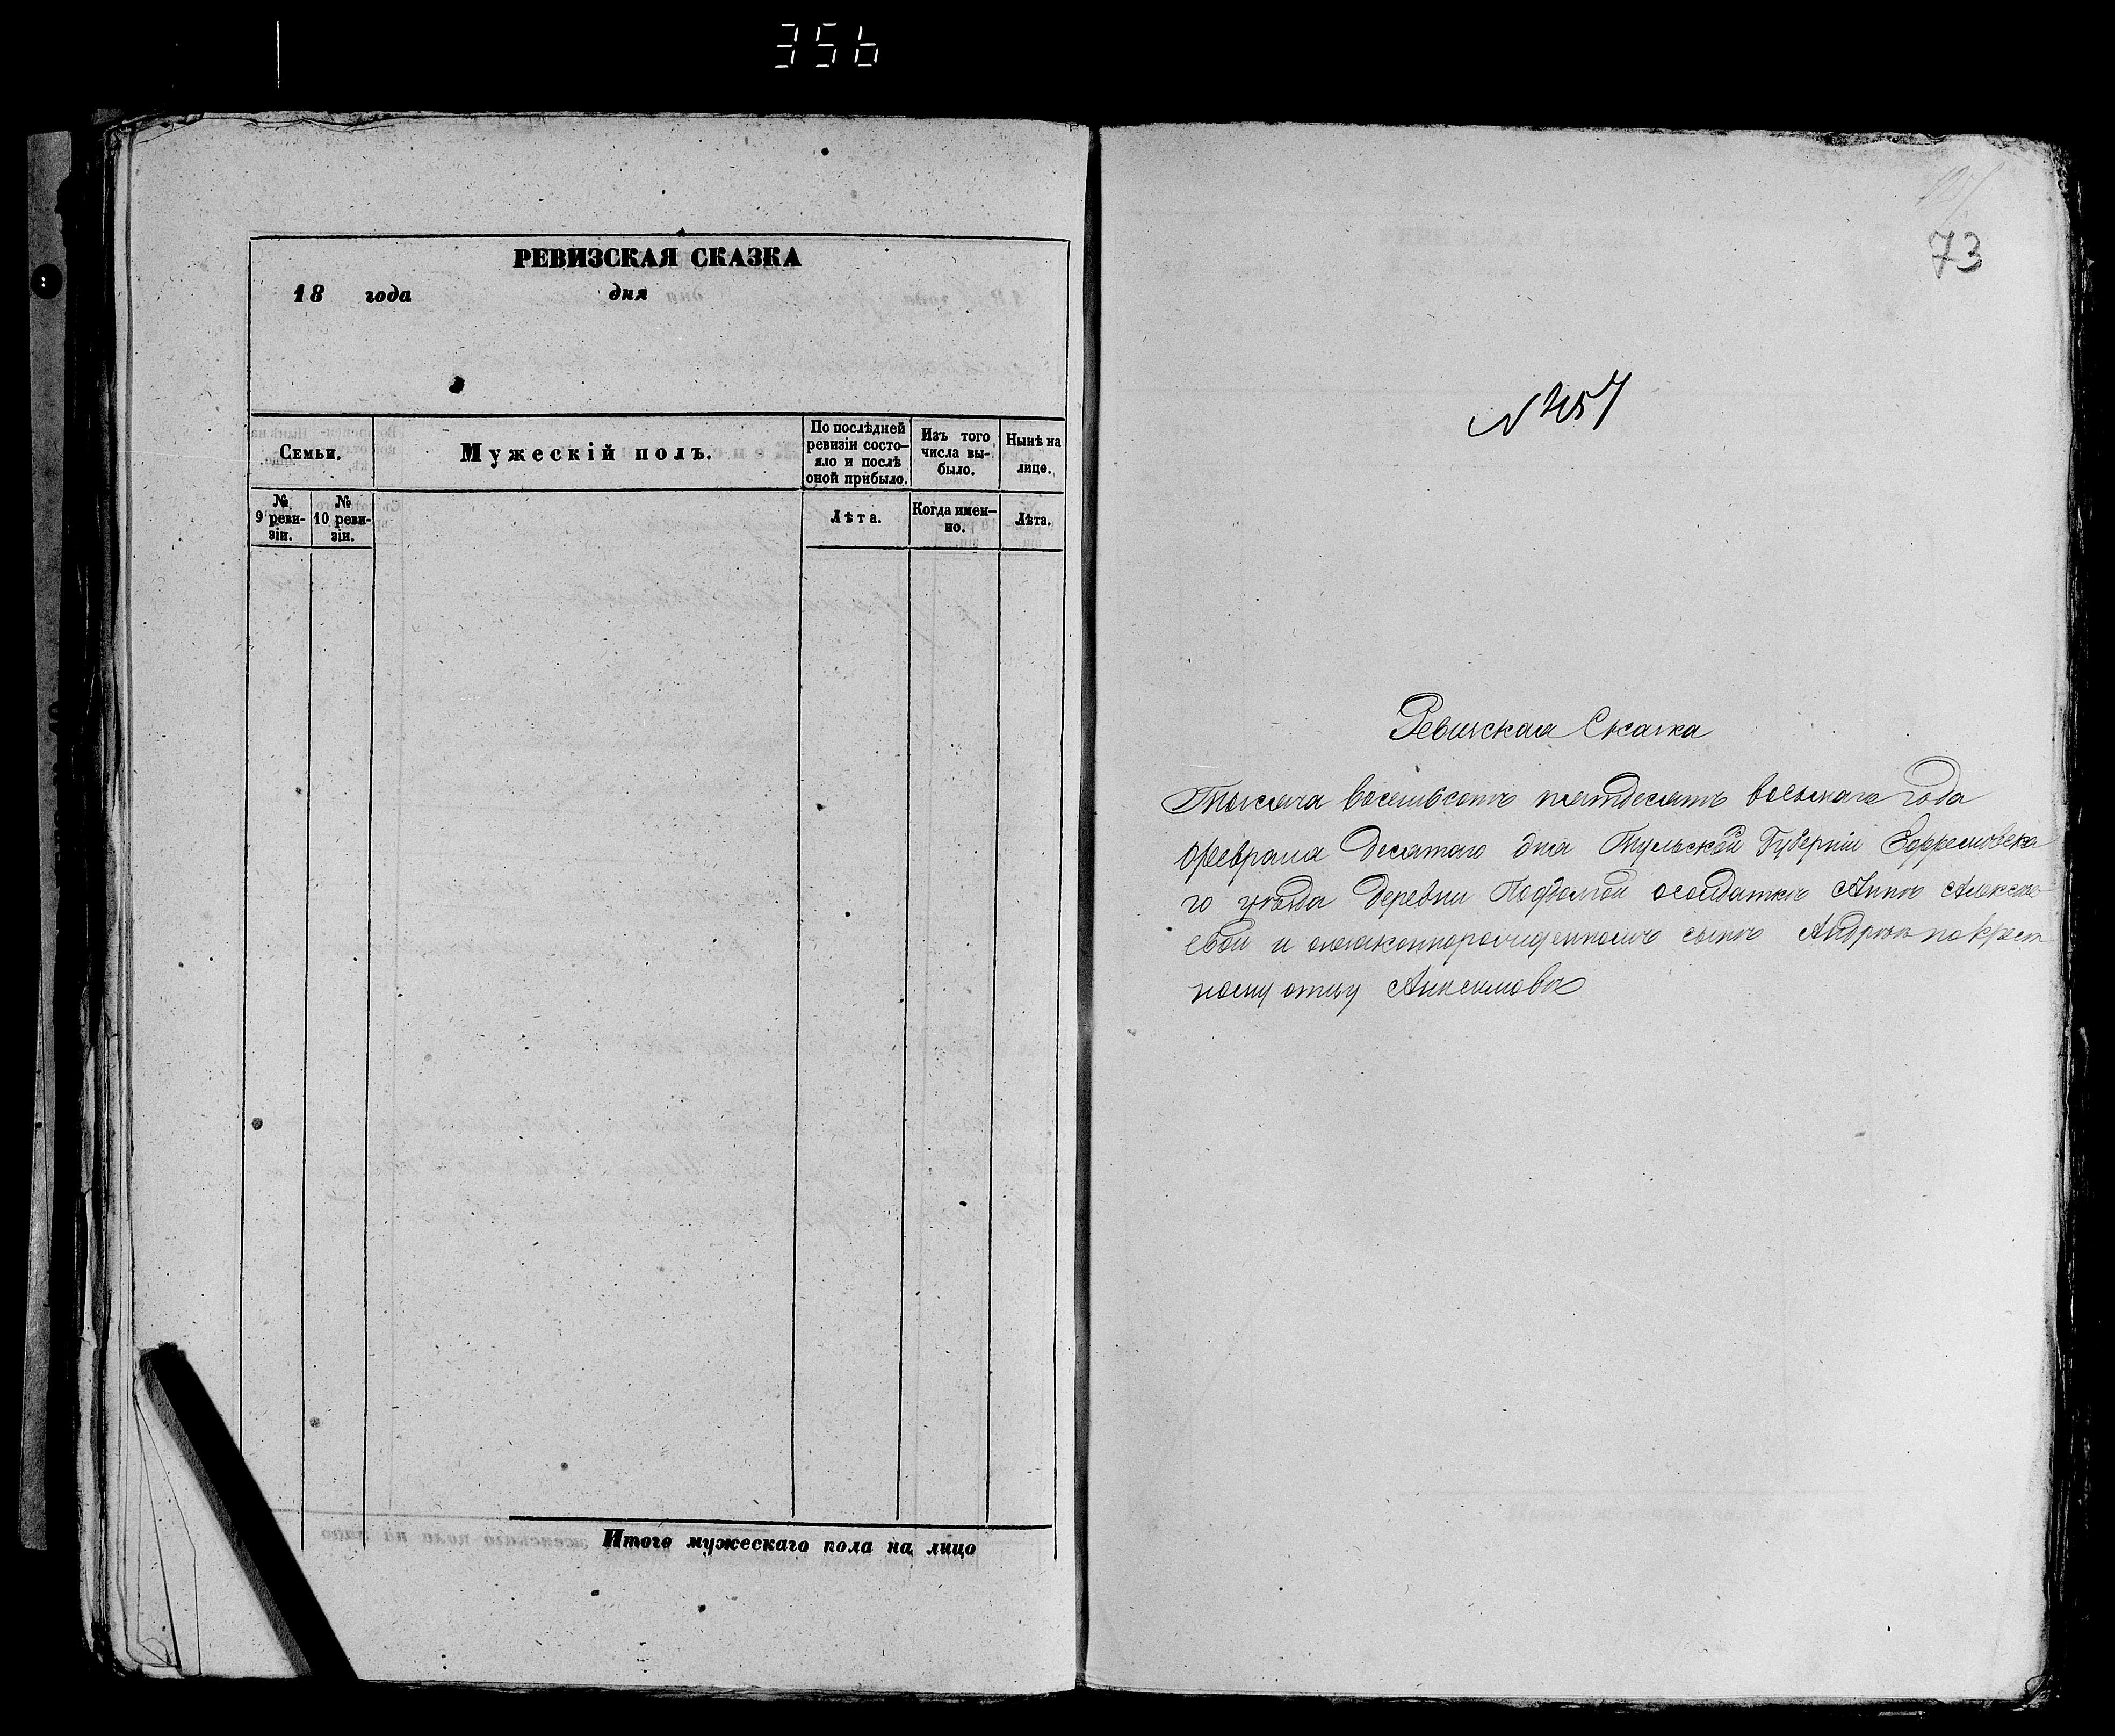 356
РЕВИЗСКАЯ СКАЗКА
18 года дня
Семьи.
Мужескій полъ.
По послѣдней ревизіи состо-
яло и послѣ оной прибыло.
Изъ того числа вы-
было.
Нынѣ на лице.
№ 9 реви-
зіи.
№ 10 реви-
зіи.
Лѣта.
Когда имен-
но.
Лѣта.
Итого мужескаго пола на лицо
73
Ревизская Сказка
Тысяча восемьсотъ пятдесятъ восьмаго года
Февраля десятаго дня Тульской Губерніи Ефремовска
го уѣзда деревни солдаткѣ Аннѣ Алексѣ
евой и сынѣ Андрѣѣ по крест
ному отцу